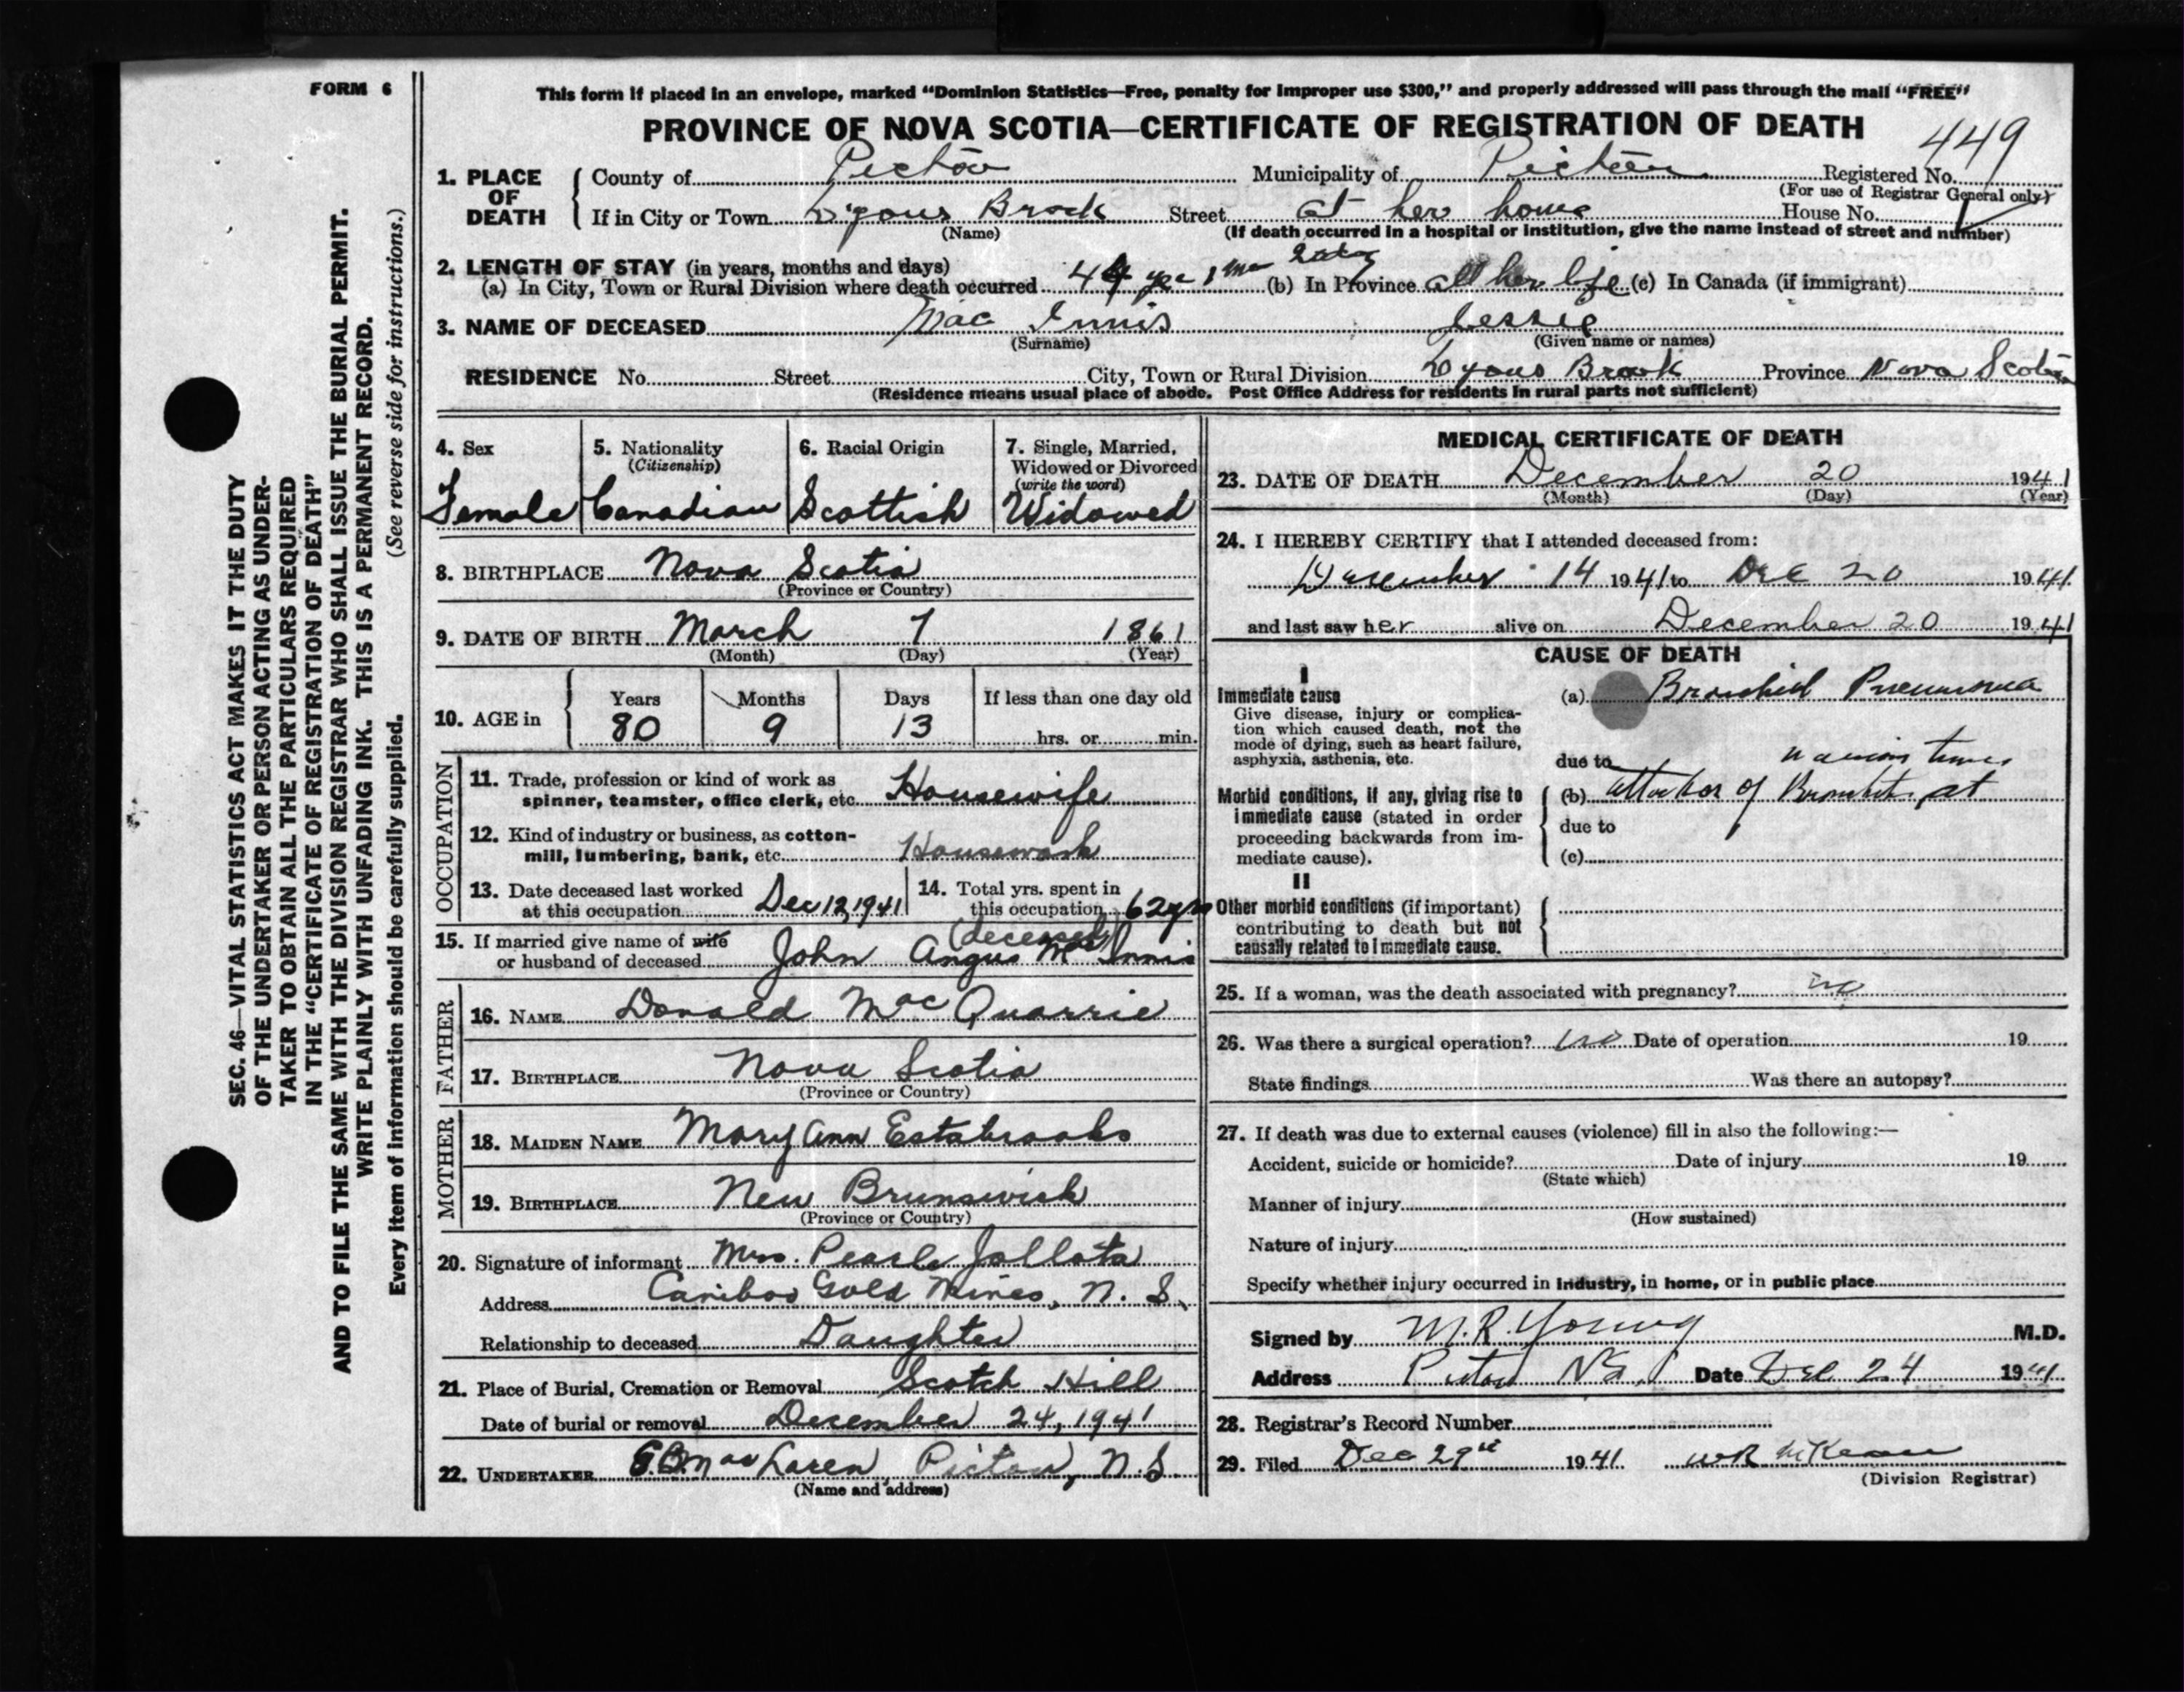 FORM 6
This form if placed in an envelope, marked “Dominion Statistics—Free, penalty for improper use $300,” and properly addressed will pass through the mail “FREE”
PROVINCE OF NOVA SCOTIA—CERTIFICATE OF REGISTRATION OF DEATH
449
1. PLACE OF DEATH County of Pictou Municipality of Pictou Registered No.
(For use of Registrar General only)
If in City or Town Lyons Brook Street at her home House No.
(Name) (If death occurred in a hospital or institution, give the name instead of street and number)
2. LENGTH OF STAY (in years, months and days)
(a) In City, Town or Rural Division where death occurred 44 yrs 1 mo (b) In Province all her life (c) In Canada (if immigrant)
3. NAME OF DECEASED Mac Innis Jessie
(Surname) (Given name or names)
RESIDENCE No. Street City, Town or Rural Division Lyons Brook Province Nova Scotia
(Residence means usual place of abode. Post Office Address for residents in rural parts not sufficient)
4. Sex Female
5. Nationality (Citizenship) Canadian
6. Racial Origin Scottish
7. Single, Married, Widowed or Divorced (write the word) Widowed
8. BIRTHPLACE Nova Scotia
(Province or Country)
9. DATE OF BIRTH March 7 1861
(Month) (Day) (Year)
10. AGE in Years 80 Months 9 Days 13 If less than one day old hrs. or min.
OCCUPATION
11. Trade, profession or kind of work as
spinner, teamster, office clerk, etc. Housewife
12. Kind of industry or business, as cotton-
mill, lumbering, bank, etc. Housework
13. Date deceased last worked
at this occupation Dec 12, 1941
14. Total yrs. spent in
this occupation 62 yrs
15. If married give name of wife
or husband of deceased John Angus Mac Innis (deceased)
FATHER
16. NAME Donald MacQuarrie
17. BIRTHPLACE Nova Scotia
(Province or Country)
MOTHER
18. MAIDEN NAME Mary Ann Estabrooks
19. BIRTHPLACE New Brunswick
(Province or Country)
20. Signature of informant Mrs. Pearle Jollota
Address Cariboo Gold Mines, N. S.
Relationship to deceased Daughter
21. Place of Burial, Cremation or Removal Scotch Hill
Date of burial or removal December 24, 1941
22. UNDERTAKER MacLaren, Pictou, N.S
(Name and address)
MEDICAL CERTIFICATE OF DEATH
23. DATE OF DEATH December 20 1941
(Month) (Day) (Year)
24. I HEREBY CERTIFY that I attended deceased from:
December 14 1941 to Dec 20 1941
and last saw her alive on December 20 1941
CAUSE OF DEATH
I
Immediate cause
Give disease, injury or complica-
tion which caused death, not the
mode of dying, such as heart failure,
asphyxia, asthenia, etc.
(a) Bronchial Pneumonia
due to
Morbid conditions, if any, giving rise to
immediate cause (stated in order
proceeding backwards from im-
mediate cause).
(b) attacks of Bronchitis at various times
due to
(c)
II
Other morbid conditions (if important)
contributing to death but not
causally related to immediate cause.
25. If a woman, was the death associated with pregnancy? no
26. Was there a surgical operation? no Date of operation 19
State findings Was there an autopsy?
27. If death was due to external causes (violence) fill in also the following:—
Accident, suicide or homicide? Date of injury 19
(State which)
Manner of injury
(How sustained)
Nature of injury
Specify whether injury occurred in industry, in home, or in public place
Signed by M.R. Young M.D.
Address Pictou N.S. Date Dec 24 1941
28. Registrar's Record Number
29. Filed Dec 29th 1941 WR McKean
(Division Registrar)
SEC. 46—VITAL STATISTICS ACT MAKES IT THE DUTY
OF THE UNDERTAKER OR PERSON ACTING AS UNDER-
TAKER TO OBTAIN ALL THE PARTICULARS REQUIRED
IN THE “CERTIFICATE OF REGISTRATION OF DEATH”
AND TO FILE THE SAME WITH THE DIVISION REGISTRAR WHO SHALL ISSUE THE BURIAL PERMIT.
WRITE PLAINLY WITH UNFADING INK. THIS IS A PERMANENT RECORD.
Every item of information should be carefully supplied. (See reverse side for instructions.)